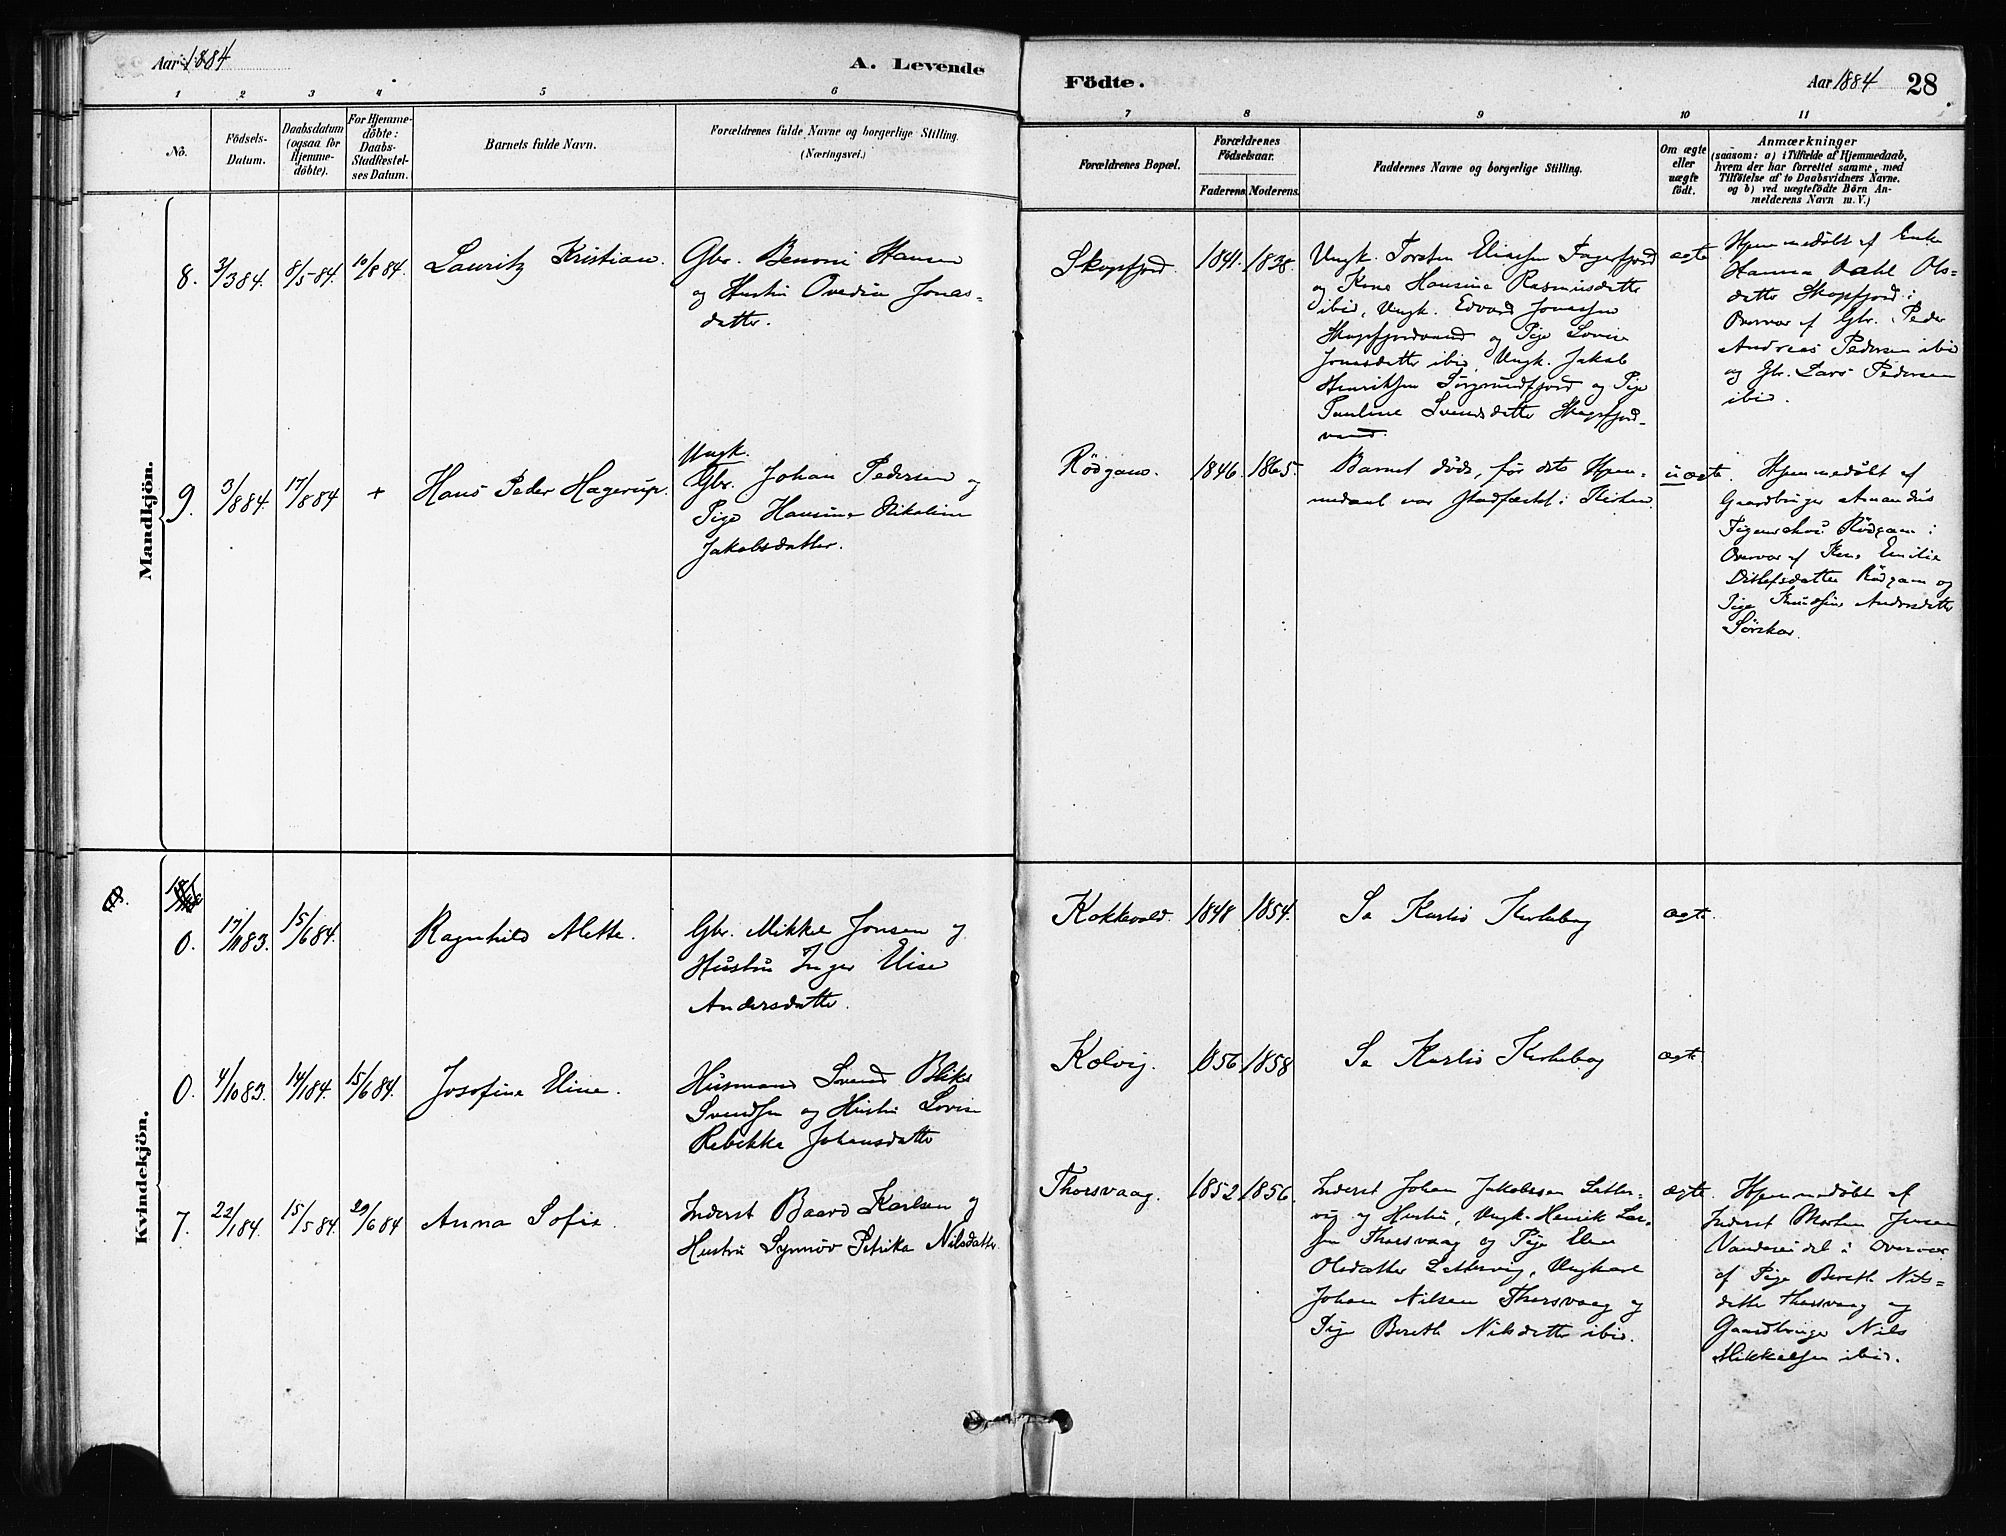 Aar 1884
A. Levende
Födte.
Aar 1884
28
1 2 3 4 5 6 7 8 9 10 11
No.
Födsels-
Datum.
Daabsdatum
(ogsaa for
Hjemme-
döbte).
For Hjemme-
döbte:
Daabs-
Stadfæstel-
ses Datum.
Barnets fulde Navn.
Forældrenes fulde Navne og borgerlige Stilling.
(Næringsvei.)
Forældrenes Bopæl.
Forældrenes
Födselsaar.
Faderens. Moderens.
Faddernes Navne og borgerlige Stilling.
Om ægte
eller
uægte
födt.
Anmærkninger
(saasom: a) i Tilfælde af Hjemmedaab,
hvem der har forrettet samme, med
Tilföielse af to Daabsvidners Navne.
og b) ved uægtefödte Börn An-
melderens Navn m. V.)
Mandkjön.
8.
3/3 84.
8/5 84.
10/8 84.
Lauritz Kristian.
Gbr. Benoni Hansen
og Hustru Ovedia Jonas-
datter.
Skogsfjord.
1841.
1838.
Ungk. Torsten Eliassen Fagerfjord
og Kone Hansine Rasmusdatter
ibid, Ungk. Edvard Jonassen
Skogsfjordvand og Pige Lovise
Jonasdatter ibid, Ungk. Jakob
Henriksen Sörgrundfjord og Pige
Pauline Svendsdatter Skogsfjord-
vand.
ægte
Hjemmedöbt af Enke
Hanna Dahl Ols-
datter Skogsfjord i
Overvær af Gbr. Peder
Andreas Pedersen ibid
og Gbr. Lars Pedersen
ibid.
9.
3/8 84.
17/8 84
+
Hans Peder Hagerup.
Ungk.
Gbr. Johan Pedersen og
Pige Hansine Nikoline
Jakobsdatter.
Rödgam.
1846.
1865.
Barnet döde, för dets Hjem-
medaab var stadfæstet i Kirken.
uægte.
Hjemmedöbt af
Gaardbruger Amandus
Rödgam i
Overvær af Kone Emilie
Ditlefsdatter Rödgam og
Pige Knudsine Andersdatter
Sörskar.
Kvindekjön.
0.
17/11 83.
15/6 84.
Ragnhild Alette.
Gbr. Mikkel Jonsen og
Hustru Inger Elise
Andersdatter.
Kokkvold.
1848
1854.
Se Karlsö Kirkebog
ægte.
0.
4/10 83.
14/1 84.
15/6 84.
Josefine Eline.
Husmand Svend Bliks
Svendsen og Hustru Lovise
Rebekka Johansdatter
Kolvig.
1856
1858
Se Karlsö Kirkebog
ægte.
7.
22/1 84.
15/5 84
29/6 84
Anna Sofie.
Inderst Baard Karlsen og
Hustru Synnöv Petrika Nilsdatter.
Thorsvaag.
1852
1856.
Inderst Johan Jakobsen Letter-
vig og Hustru, Ungk. Henrik Lar-
sen Thorsvaag og Pige Elen
Olsdatter Lettervig, Ungkarl
Johan Nilsen Thorsvaag og
Pige Bereth Nilsdatter ibid.
ægte.
Hjemmedöbt af
Inderst Morten Jensen
Vandseidet i Overvær
af Pige Bereth Nils-
datter Thorsvaag og
Gaardbruger Nils
Mikkelsen ibid.